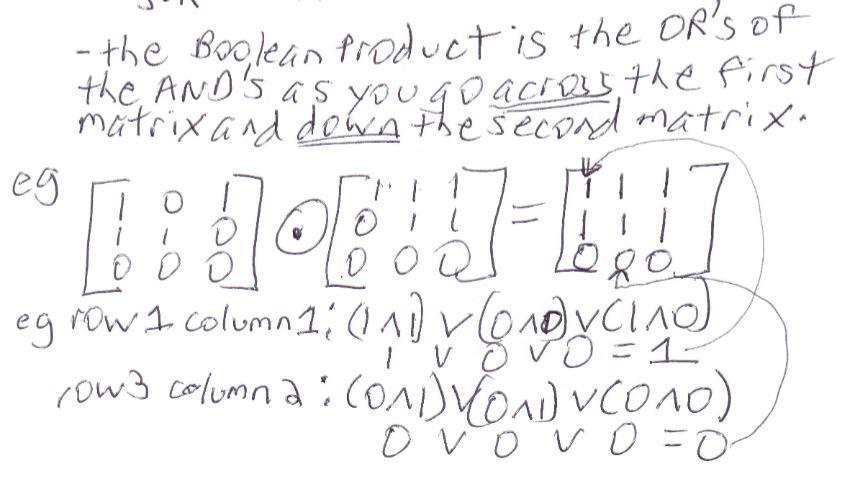 - the Boolean product is the OR's of
the AND's as you go across the first
matrix and down the second matrix.
eg [1 0 1] ⊙ [1 1 1] = [1 1 1]
[1 1 0] [0 1 1] [1 1 1]
[0 0 0] [0 0 0] [0 0 0]
eg row 1 column 1: (1∧1) ∨ (0∧0) ∨ (1∧0)
1 ∨ 0 ∨ 0 = 1
row 3 column 2: (0∧1) ∨ (0∧1) ∨ (0∧0)
0 ∨ 0 ∨ 0 = 0